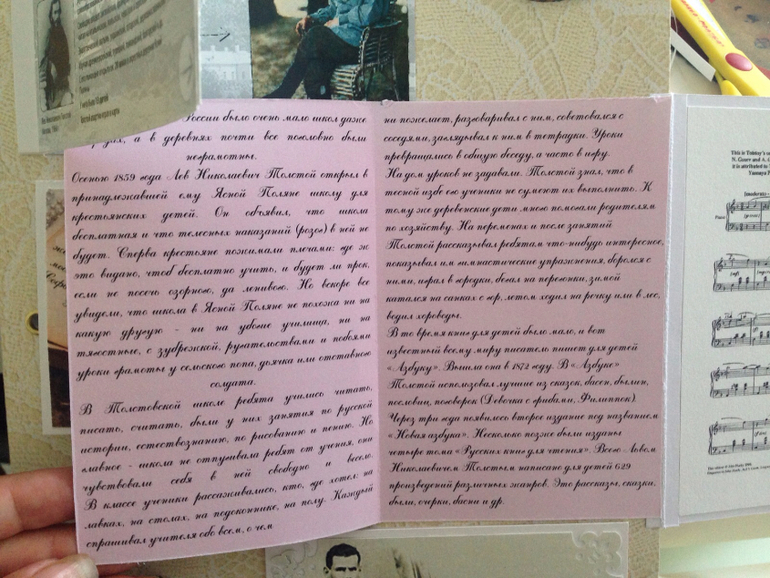 России было очень мало школ даже
а в деревнях почти все поголовно были
неграмотны.
Осенью 1859 года Лев Николаевич Толстой открыл в
принадлежавшей ему Ясной Поляне школу для
крестьянских детей. Он объявил, что школа
бесплатная и что телесных наказаний (розог) в ней не
будет. Сперва крестьяне пожимали плечами: где ж
это видано, чтоб бесплатно учить, а будет ли прок,
если не посечь озорного, да ленивого. Но вскоре все
увидели, что школа в Ясной Поляне не похожа ни на
какую другую - ни на убогие училища, ни на
тягостные, с зубрежкой, ругательствами и побоями
уроки грамоты у сельского попа, дьячка или отставного
солдата.
В Толстовской школе ребята учились читать,
писать, считать, были у них занятия по русской
истории, естествознанию, по рисованию и пению. Но
главное - школа не отпугивала ребят от учения, они
чувствовали себя в ней свободно и весело.
В классе ученики рассаживались, кто, где хотел: на
лавках, на столах, на подоконнике, на полу. Каждый
спрашивал учителя обо всем, о чем
ни пожелает, разговаривал с ним, советовался с
соседями, заглядывал к ним в тетрадки. Уроки
превращались в общую беседу, а часто в игру.
На дом уроков не задавали. Толстой знал, что в
тесной избе его ученики не сумеют их выполнить. К
тому же деревенские дети много помогали родителям
по хозяйству. На переменах и после занятий
Толстой рассказывал ребятам что-нибудь интересное,
показывал им гимнастические упражнения, боролся с
ними, играл в городки, бегал на перегонки, зимой
катался на санках с гор, летом ходил на речку или в лес,
водил хороводы.
В то время книг для детей было мало, и вот
известный всему миру писатель пишет для детей
«Азбуку». Вышла она в 1872 году. В «Азбуке»
Толстой использовал лучшие из сказок, басен, былин,
пословиц, поговорок (Девочка с грибами, Филиппок).
Через три года появилось второе издание под названием
«Новая азбука». Несколько позже были изданы
четыре тома «Русских книг для чтения». Всего Львом
Николаевичем Толстым написано для детей 629
произведений различных жанров. Это рассказы, сказки,
были, очерки, басни и др.
This is Tolstoy's